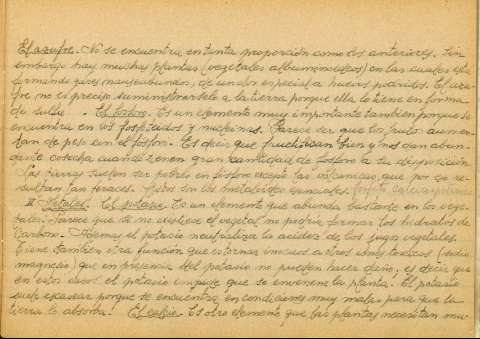 El azufre.- No se encuentra en tanta proporción como los anteriores. Sin
embargo hay muchas plantas (vegetales albuminoideos) en las cuales esta
formando gases nauseabundos, de un olor especial a huevos podridos. El azu-
fre, no es preciso suministrarsele a la tierra porque ella lo tiene en forma
de sulfu El fosforo. Es un elemento muy importante tambien porque se
encuentra en los fosfatados y nucleinas. Parece ser que los frutos aumen-
tan de peso con el fosforo. Es decir que fructifican bien y nos dan abun-
dante cosecha cuando tienen gran cantidad de fosforo a su disposición
Las tierras suelen ser pobres en fosforo excepto las volcanicas, que por eso re-
sultan tan feraces. Estos son los metaloides esenciales.
II Metales. El potasio Es un elemento que abunda bastante en los vege-
tales. Parece que si no existiese el vegetal no podria formar los hidratos de
Carbono. Ademas el potasio neutraliza la acidez de los jugos vegetales.
Tiene tambien otra función que es tornar inocuos a otros iones toxicos (sodio
magnesio) que en presencia del potasio no pueden hacer daño, es decir que
en estos casos el potasio impide que se envenene la planta. El potasio
suele escasear porque se encuentra en condiciones muy malas para que la
tierra lo absorba. El calcio. Es otro elemento que las plantas necesitan mu-